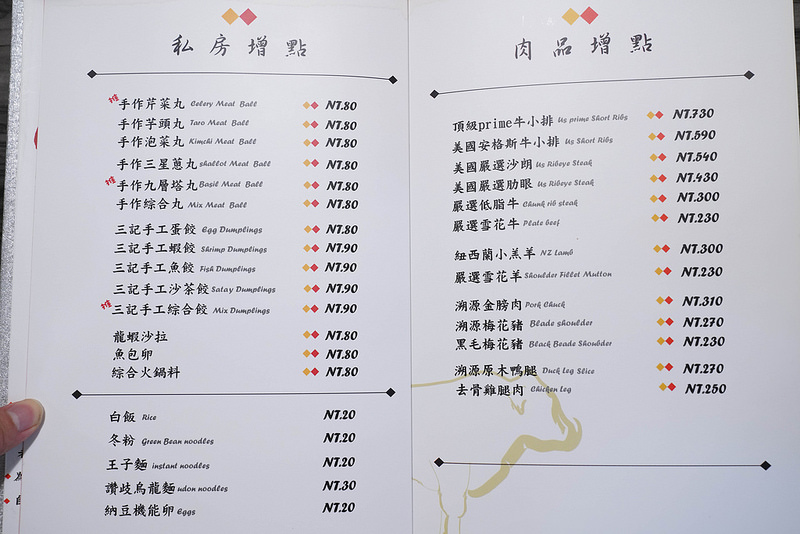 私房增點
推 手作芹菜丸 Celery Meat Ball NT.80
手作芋頭丸 Taro Meat Ball NT.80
手作泡菜丸 Kimchi Meat Ball NT.80
手作三星蔥丸 shallot Meat Ball NT.80
推 手作九層塔丸 Basil Meat Ball NT.80
手作綜合丸 Mix Meat Ball NT.80
三記手工蛋餃 Egg Dumplings NT.80
三記手工蝦餃 Shrimp Dumplings NT.90
三記手工魚餃 Fish Dumplings NT.90
三記手工沙茶餃 Satay Dumplings NT.90
推 三記手工綜合餃 Mix Dumplings NT.90
龍蝦沙拉 NT.80
魚包卵 NT.80
綜合火鍋料 NT.80
白飯 Rice NT.20
冬粉 Green Bean noodles NT.20
王子麵 instant noodles NT.20
讚歧烏龍麵 udon noodles NT.30
納豆機能卵 Eggs NT.20
肉品增點
頂級prime牛小排 Us prime Short Ribs NT.730
美國安格斯牛小排 Us Short Ribs NT.590
美國嚴選沙朗 Us Ribeye Steak NT.540
美國嚴選肋眼 Us Ribeye Steak NT.430
嚴選低脂牛 Chunk rib steak NT.300
嚴選雪花牛 Plate beef NT.230
紐西蘭小羔羊 NZ Lamb NT.300
嚴選雪花羊 Shoulder Fillet Mutton NT.230
溯源金膀肉 Pork Chuck NT.310
溯源梅花豬 Blade shoulder NT.270
黑毛梅花豬 Black Beade Shoulder NT.230
溯源原木鴨腿 Duck Leg Slice NT.270
去骨雞腿肉 Chicken Leg NT.250